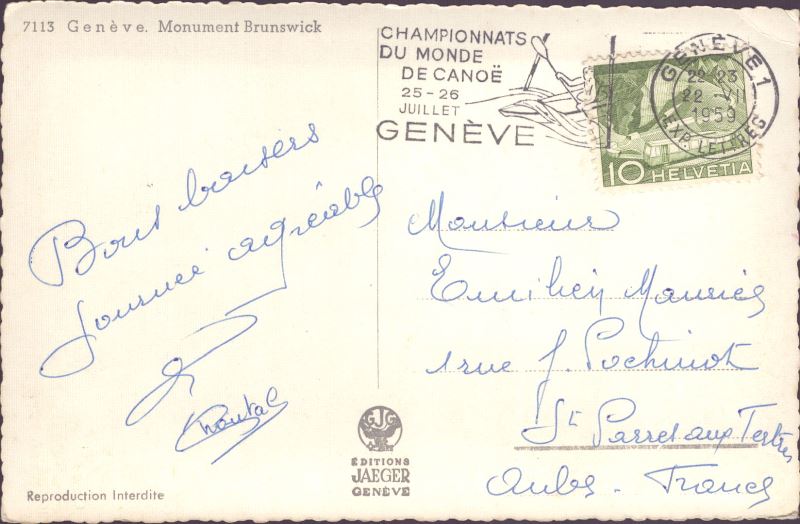 7113 Genève. Monument Brunswick
CHAMPIONNATS
DU MONDE
DE CANOË
25-26
JUILLET
GENÈVE
GENÈVE 1
22-23
22 VII
1959
EXP. LETTRES
10 HELVETIA
Bons baisers
Journée agréable
Chantal
Monsieur
Emilien Mauriès
1 rue J. Pochinot
St Parres aux Tertres
Aube - France
ÉDITIONS
JAEGER
GENÈVE
Reproduction Interdite